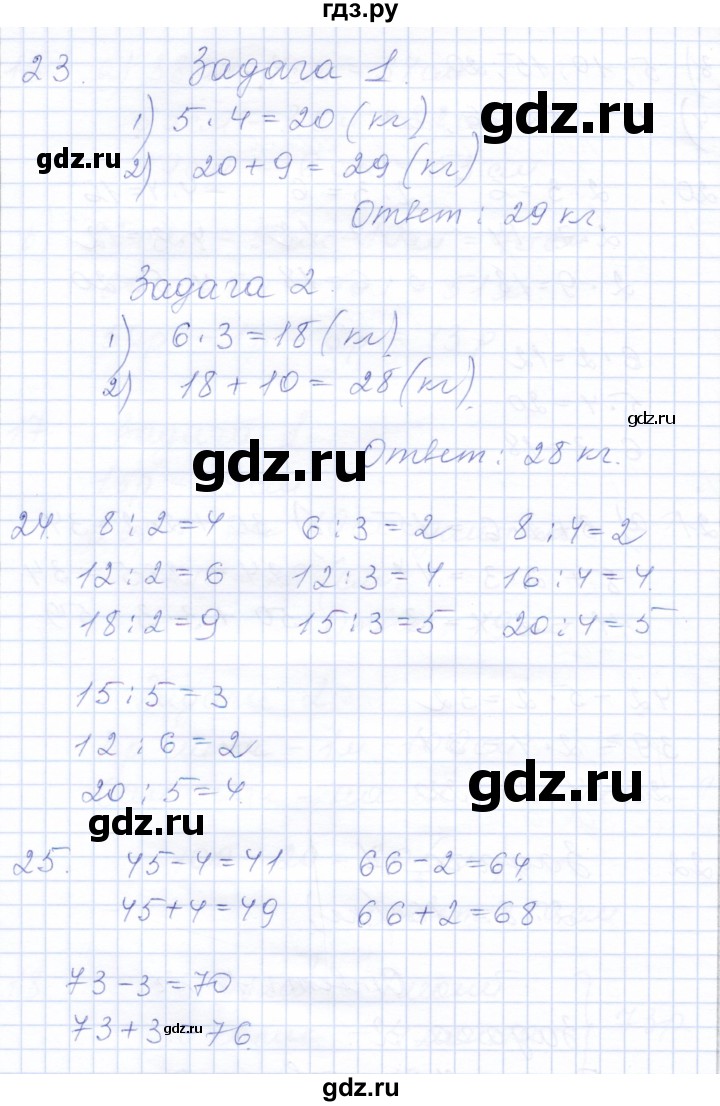 гдз.ру
23. Задача 1.
1) 5 · 4 = 20 (кг)
2) 20 + 9 = 29 (кг)
Ответ: 29 кг.
Задача 2.
1) 6 · 3 = 18 (кг)
2) 18 + 10 = 28 (кг).
Ответ: 28 кг.
24. 8 : 2 = 4 6 : 3 = 2 8 : 4 = 2
12 : 2 = 6 12 : 3 = 4 16 : 4 = 4
18 : 2 = 9 15 : 3 = 5 20 : 4 = 5
15 : 5 = 3
12 : 6 = 2
20 : 5 = 4
25. 45 - 4 = 41 66 - 2 = 64
45 + 4 = 49 66 + 2 = 68
73 - 3 = 70
73 + 3 76
gdz.ru
gdz.ru
gdz.ru
gdz.ru
gdz.ru
gdz.ru
gdz.ru
gdz.ru